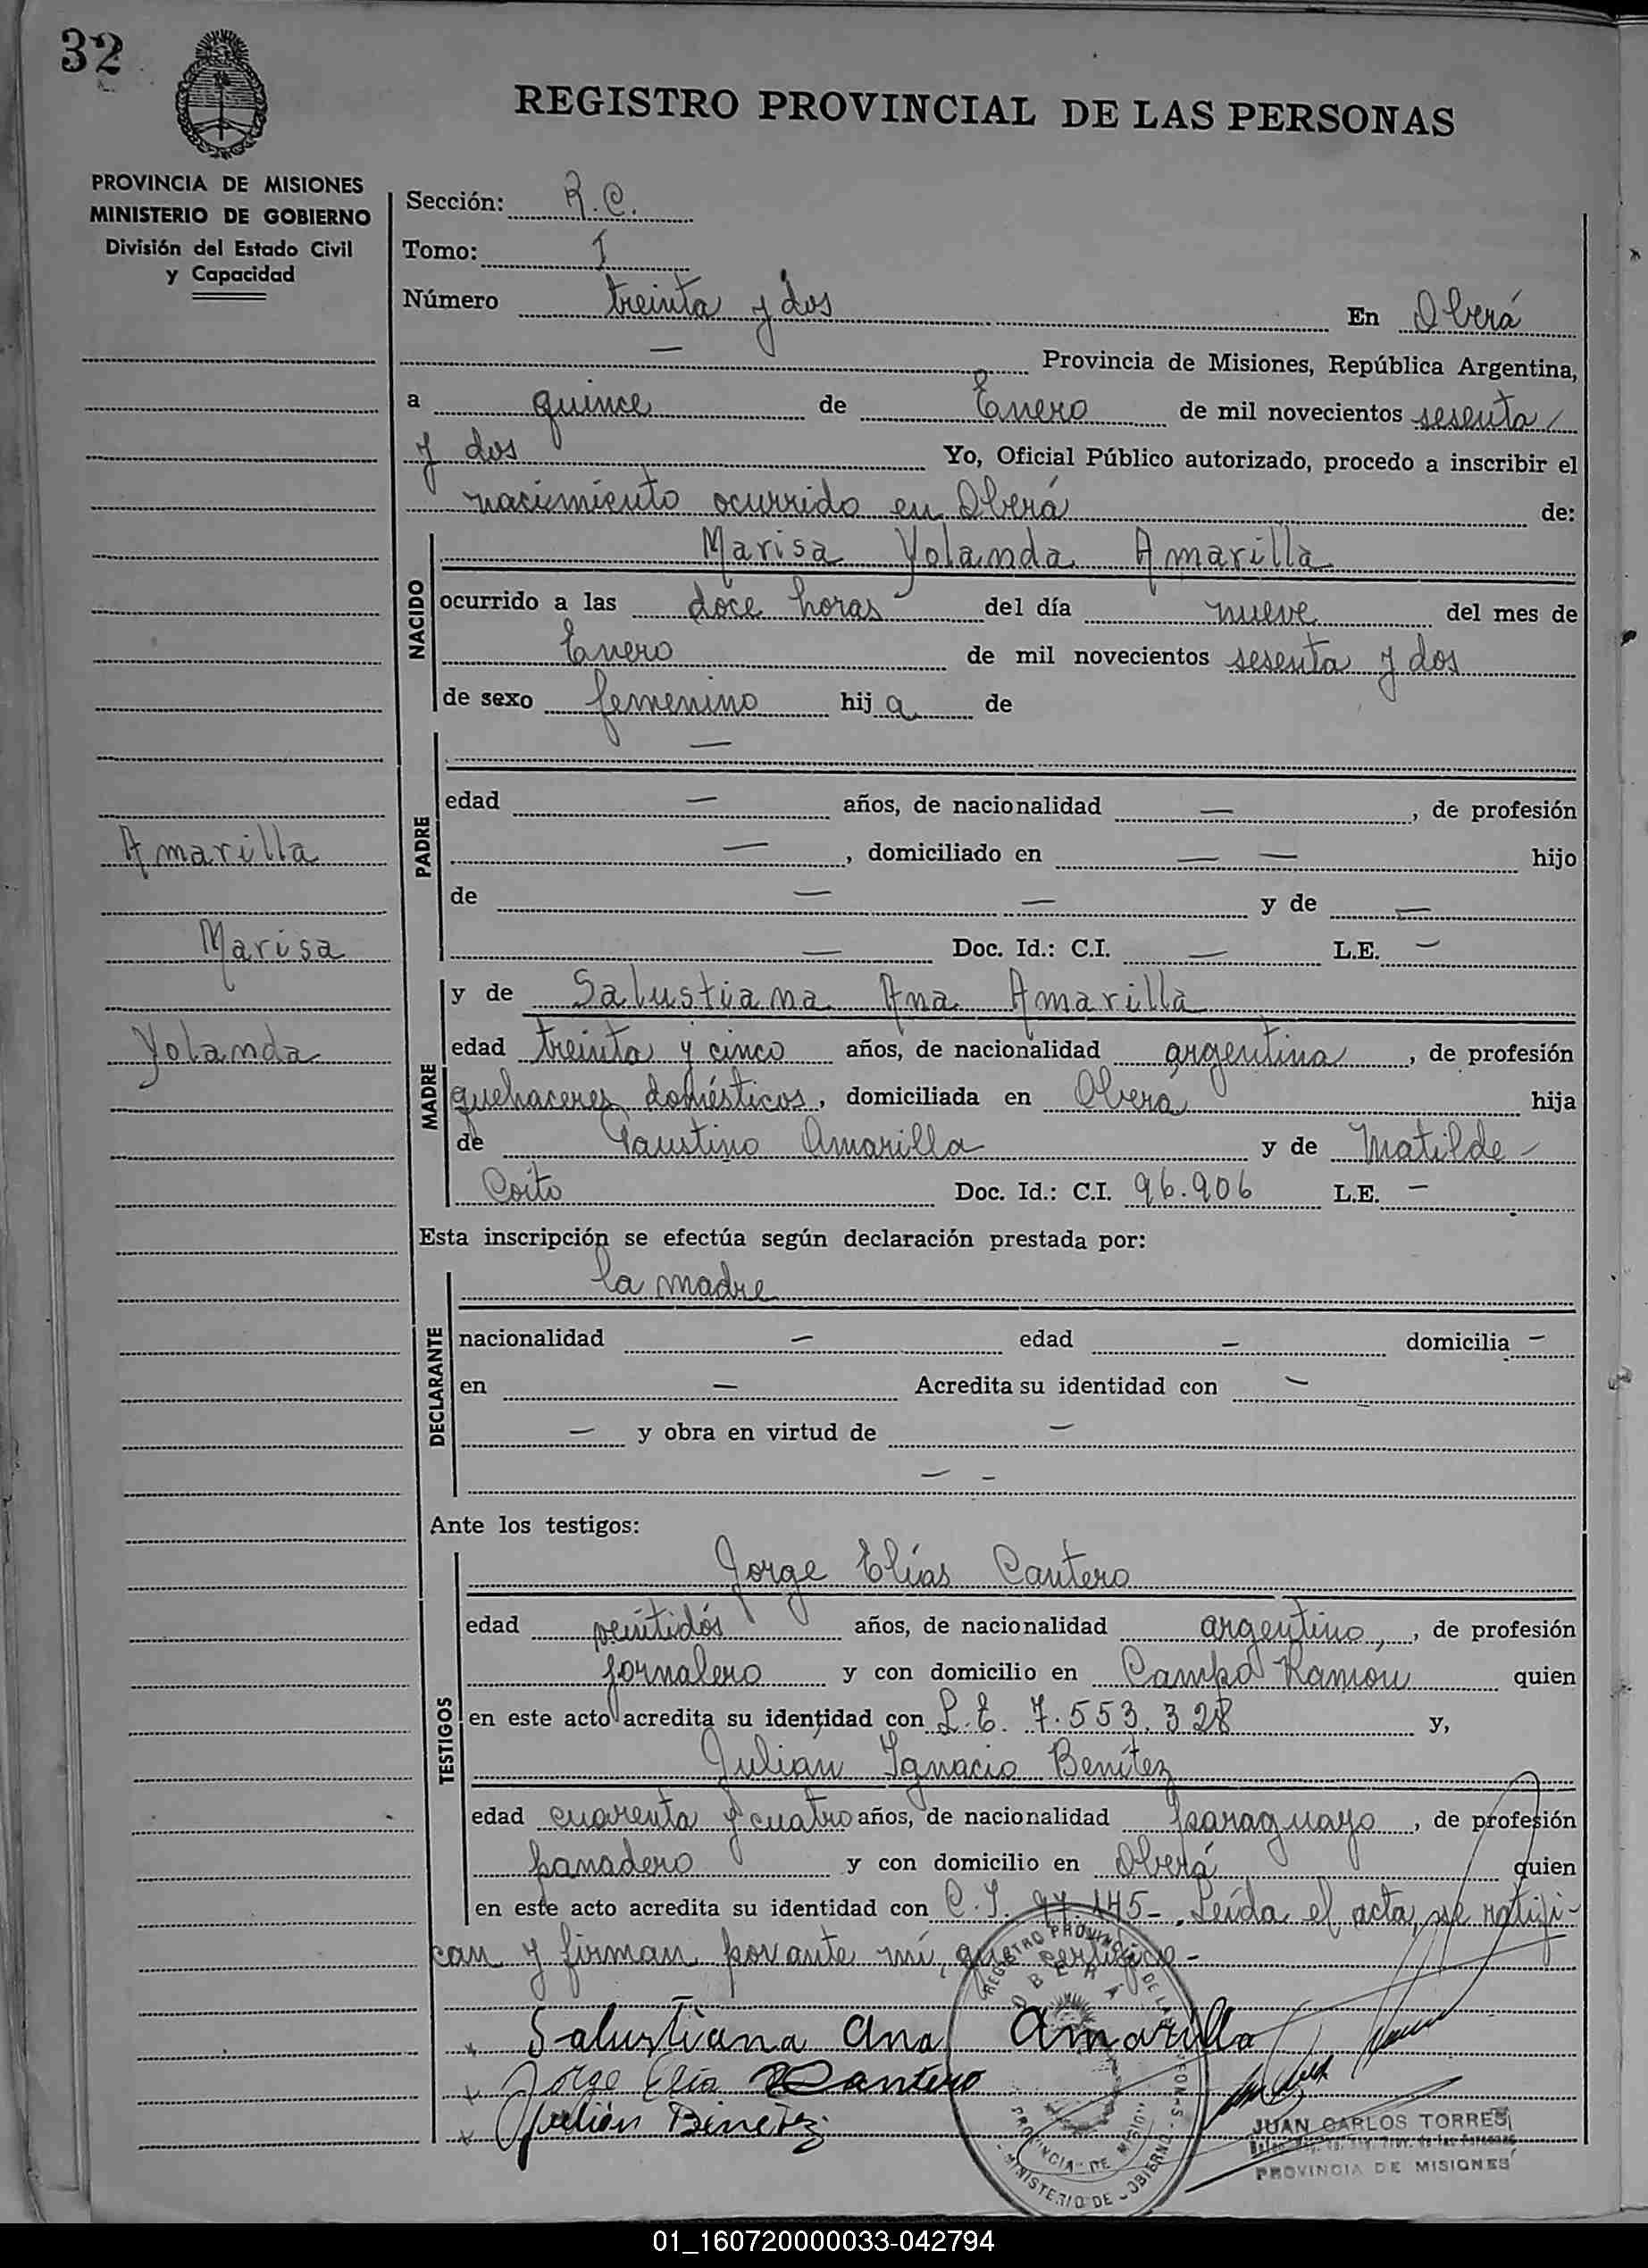 32
REGISTRO PROVINCIAL DE LAS PERSONAS
PROVINCIA DE MISIONES
MINISTERIO DE GOBIERNO
División del Estado Civil
y Capacidad
Sección: R.C.
Tomo: I
Número treinta y dos En Oberá
— Provincia de Misiones, República Argentina,
a quince de Enero de mil novecientos sesenta
y dos Yo, Oficial Público autorizado, procedo a inscribir el
nacimiento ocurrido en Oberá de:
NACIDO
Marisa Yolanda Amarilla
ocurrido a las doce horas del día nueve del mes de
Enero de mil novecientos sesenta y dos
de sexo femenino hij a de
PADRE
—
edad — años, de nacionalidad —, de profesión
—, domiciliado en — — hijo
de — — y de —
— Doc. Id.: C.I. — L.E. —
Amarilla
Marisa
Yolanda
MADRE
y de Salustiana Ana Amarilla
edad treinta y cinco años, de nacionalidad argentina, de profesión
quehaceres domésticos, domiciliada en Oberá hija
de Faustino Amarilla y de Matilde
Coito Doc. Id.: C.I. 96.906 L.E. —
Esta inscripción se efectúa según declaración prestada por:
DECLARANTE
la madre
nacionalidad — edad — domicilia —
en — Acredita su identidad con —
— y obra en virtud de —
— -
Ante los testigos:
TESTIGOS
Jorge Elías Cantero
edad veintidós años, de nacionalidad argentino, de profesión
jornalero y con domicilio en Campo Ramón quien
en este acto acredita su identidad con L.E. 7.553.328 y,
Julián Ignacio Benítez
edad cuarenta y cuatro años, de nacionalidad paraguayo, de profesión
panadero y con domicilio en Oberá quien
en este acto acredita su identidad con C.I. 97.145-. Leída el acta, se ratifi-
can y firman por ante mí, que certifico-
Salustiana Ana Amarilla
Jorge Elia Cantero
Julián Binetez
REGISTRO PROVINCIAL DE LAS PERSONAS
OBERA
PROVINCIA DE MISIONES
MINISTERIO DE GOBIERNO
JUAN CARLOS TORRES
PROVINCIA DE MISIONES
01_160720000033-042794